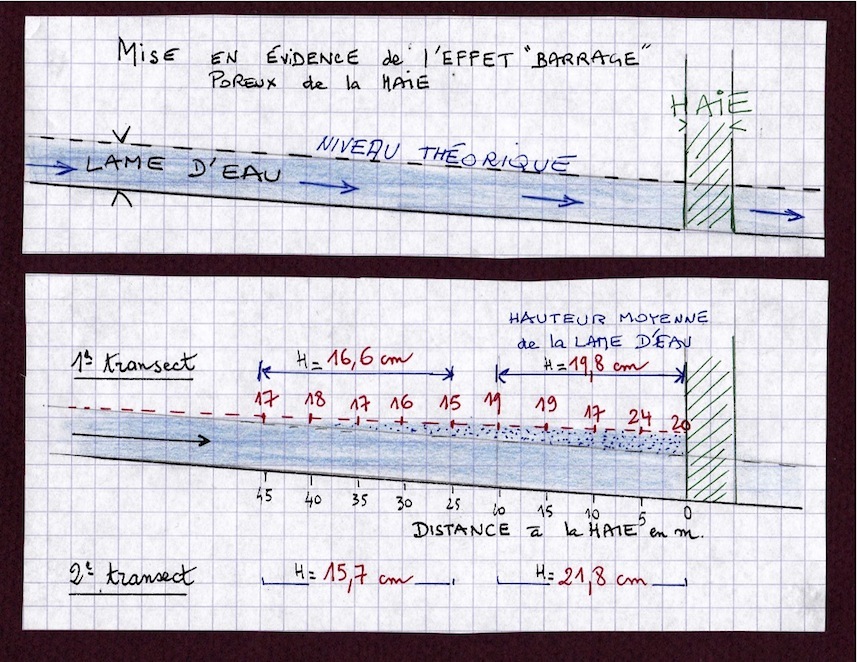 MISE EN ÉVIDENCE de l'EFFET "BARRAGE"
POREUX de la HAIE
HAIE
NIVEAU THÉORIQUE
LAME D'EAU
HAUTEUR MOYENNE
de la LAME D'EAU
1er transect
H = 16,6 cm
H = 19,8 cm
17 18 17 16 15 19 19 17 24 20
45 40 35 30 25 20 15 10 5 0
DISTANCE à la HAIE en m.
2e transect
H = 15,7 cm
H = 21,8 cm